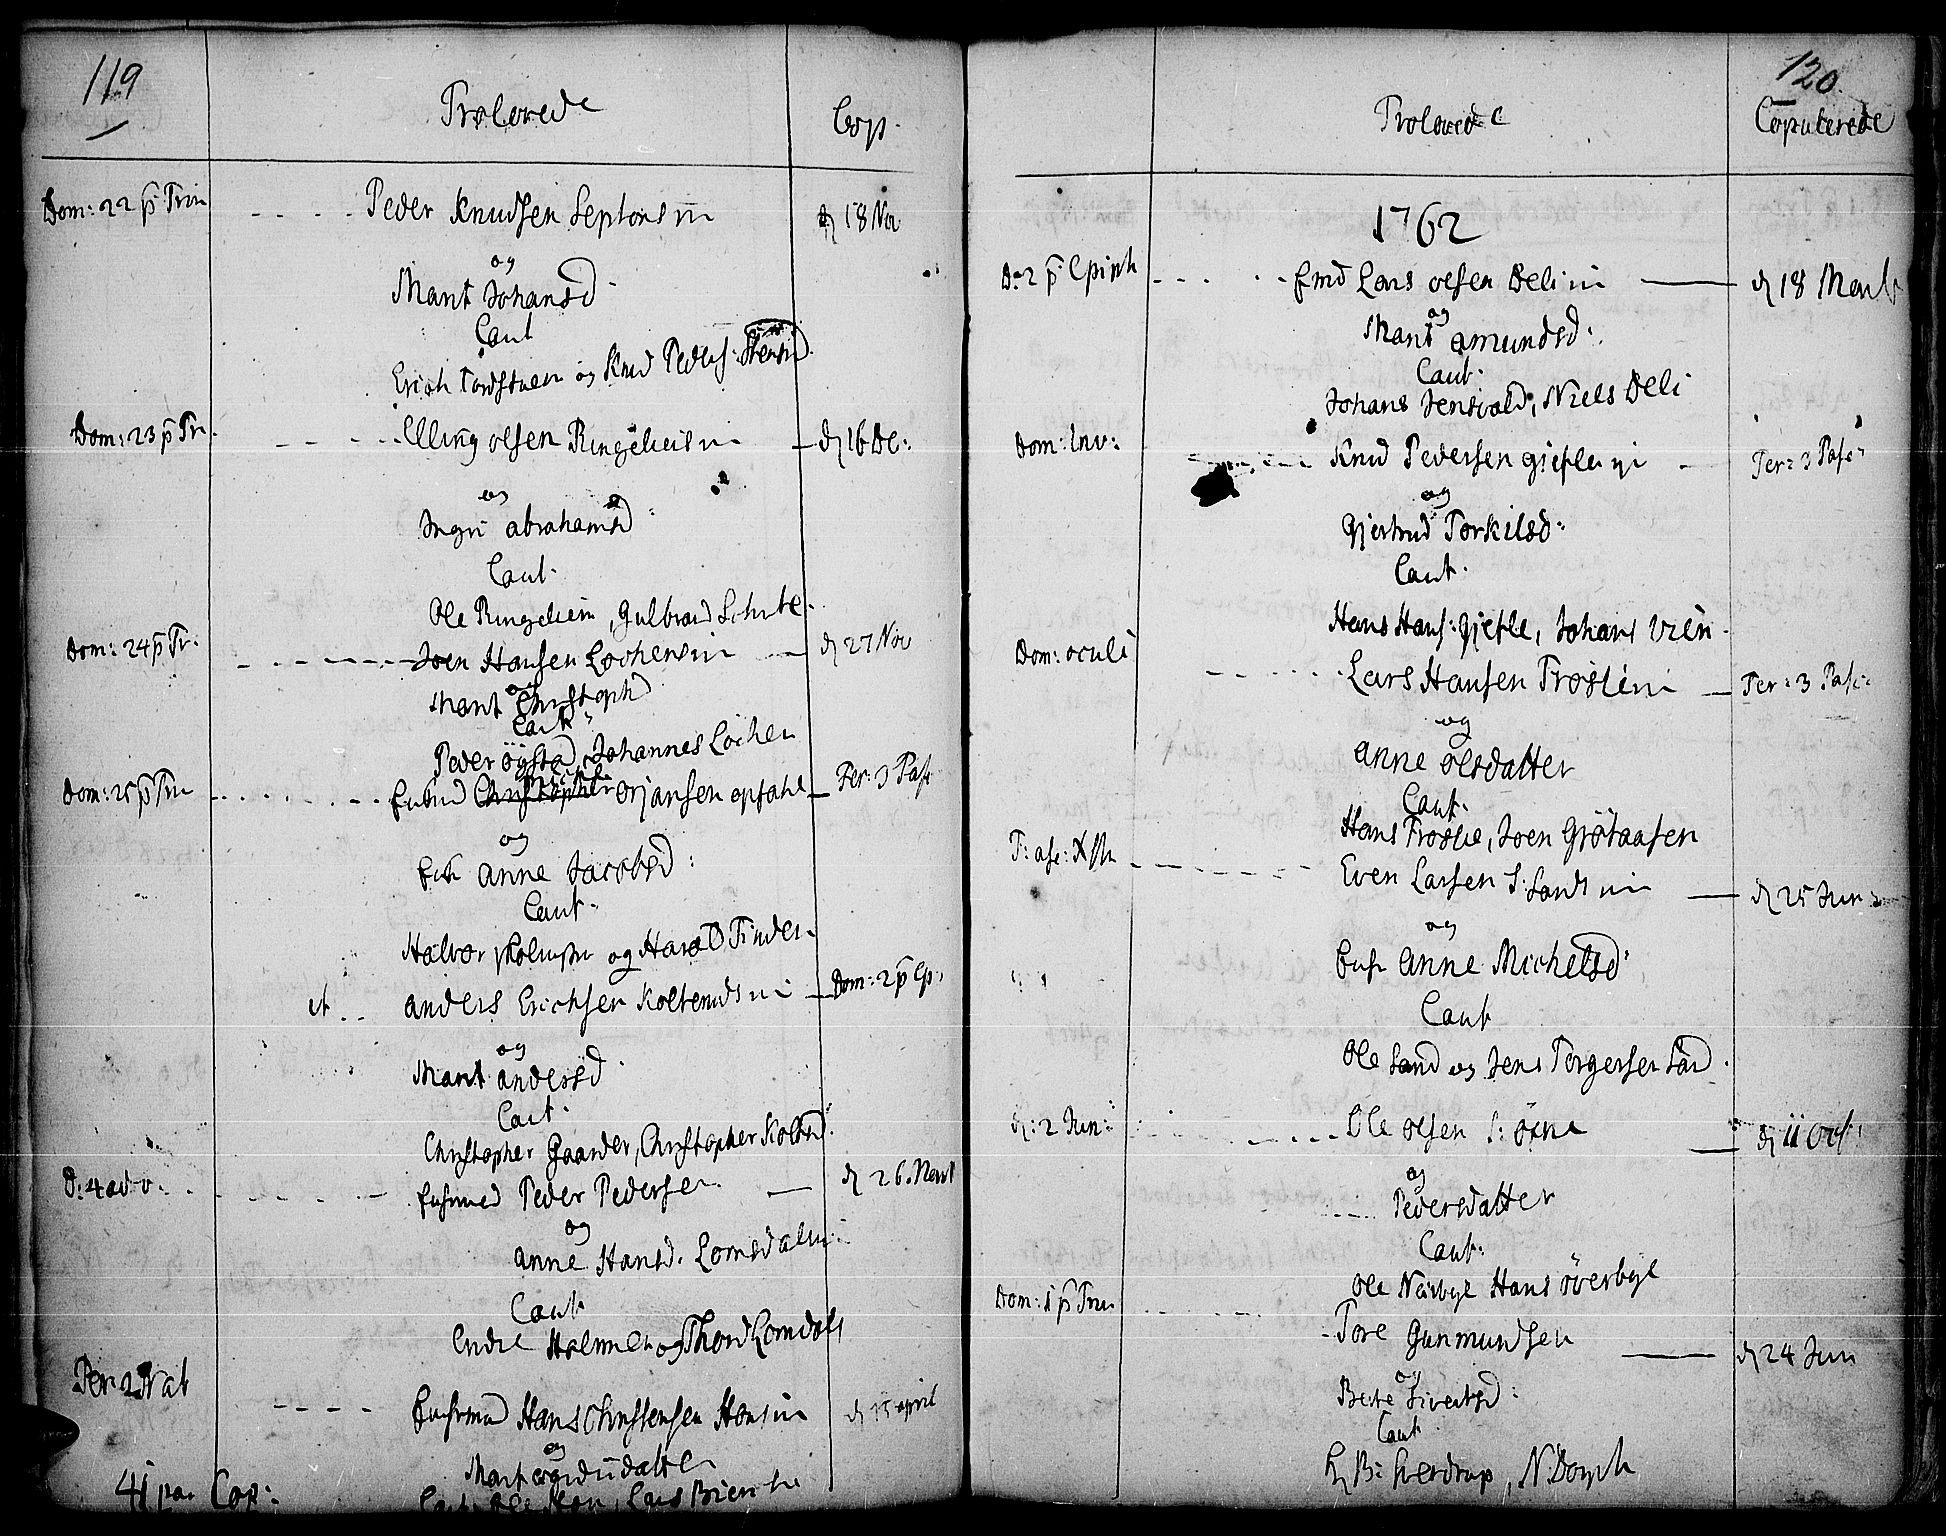 119
Trolovede
Cop.
Dom: 22 p Trin
Peder Knudsen Septons
d 18 Nov
og
Marit Johansd
Caut
Erich og Knud Peders:
Dom: 23 p Tr.
Elling olsen Ringelien
d 16 De:
og
Ingri abrahamsd:
Caut.
Ole Ringelien, Gulbrand
Dom: 24 p Tr:
Joen Hansen Lochens
d 27 Nov
og
Marit Christophd
Caut
Peder öÿstad, Johannes Lochen
Dom: 25 p Trin
Michel
Orjansen opsahl
Fer: 3 Pasc
og
Anne Jacobsd:
Caut.
Halvor og Harald Tinder
et
anders Erichsen
Dom: 2 p Ep:
og
Marit andersd
Caut.
Christopher Gaarder, Christopher
D: 4 adv.
Peder Pedersen
d 26. Mart
og
anne Hansd. Lomsdalen
Caut
Endre Holmen og Thord Lomdal
Fer: 2 Nat
Hans Christensen
d 15 april
og
Marit
41 par Cop:
120.
Trolovede
Copulerede
1762
D: 2 p Epiph
Lars olsen Deli
d 18 Mart
og
Marit amundsd:
Caut.
Johans Jensvold, Niels Deli
Dom: Inv:
Knud Pedersen giefle
Fer: 3 Pasc
og
Gjertrud Torkilsd:
Caut.
Hans Hans: Gjefle, Johans
Dom: oculi
Lars Hansen Trosli
Fer: 3 Pasc:
og
anne olsdatter
Caut.
Hans, Joen Grötaasen
F: asc: Xsti
Even Larsen S: Sand
d 25 Jun
og
Anne Michelsd
Caut
Ole Sand og Jens Torgersen Sand
d: 2 Jun:
Ole olsen S: öxne
d 11 Oct:
og
Pedersdatter
Caut:
Ole Neirbye Hans överbye
Dom: 1 p Trin
Tore Gunmundsen
d 24 Jun
og
Berte Sivertsd:
Caut
H B: Sverdrup, N. Dorph